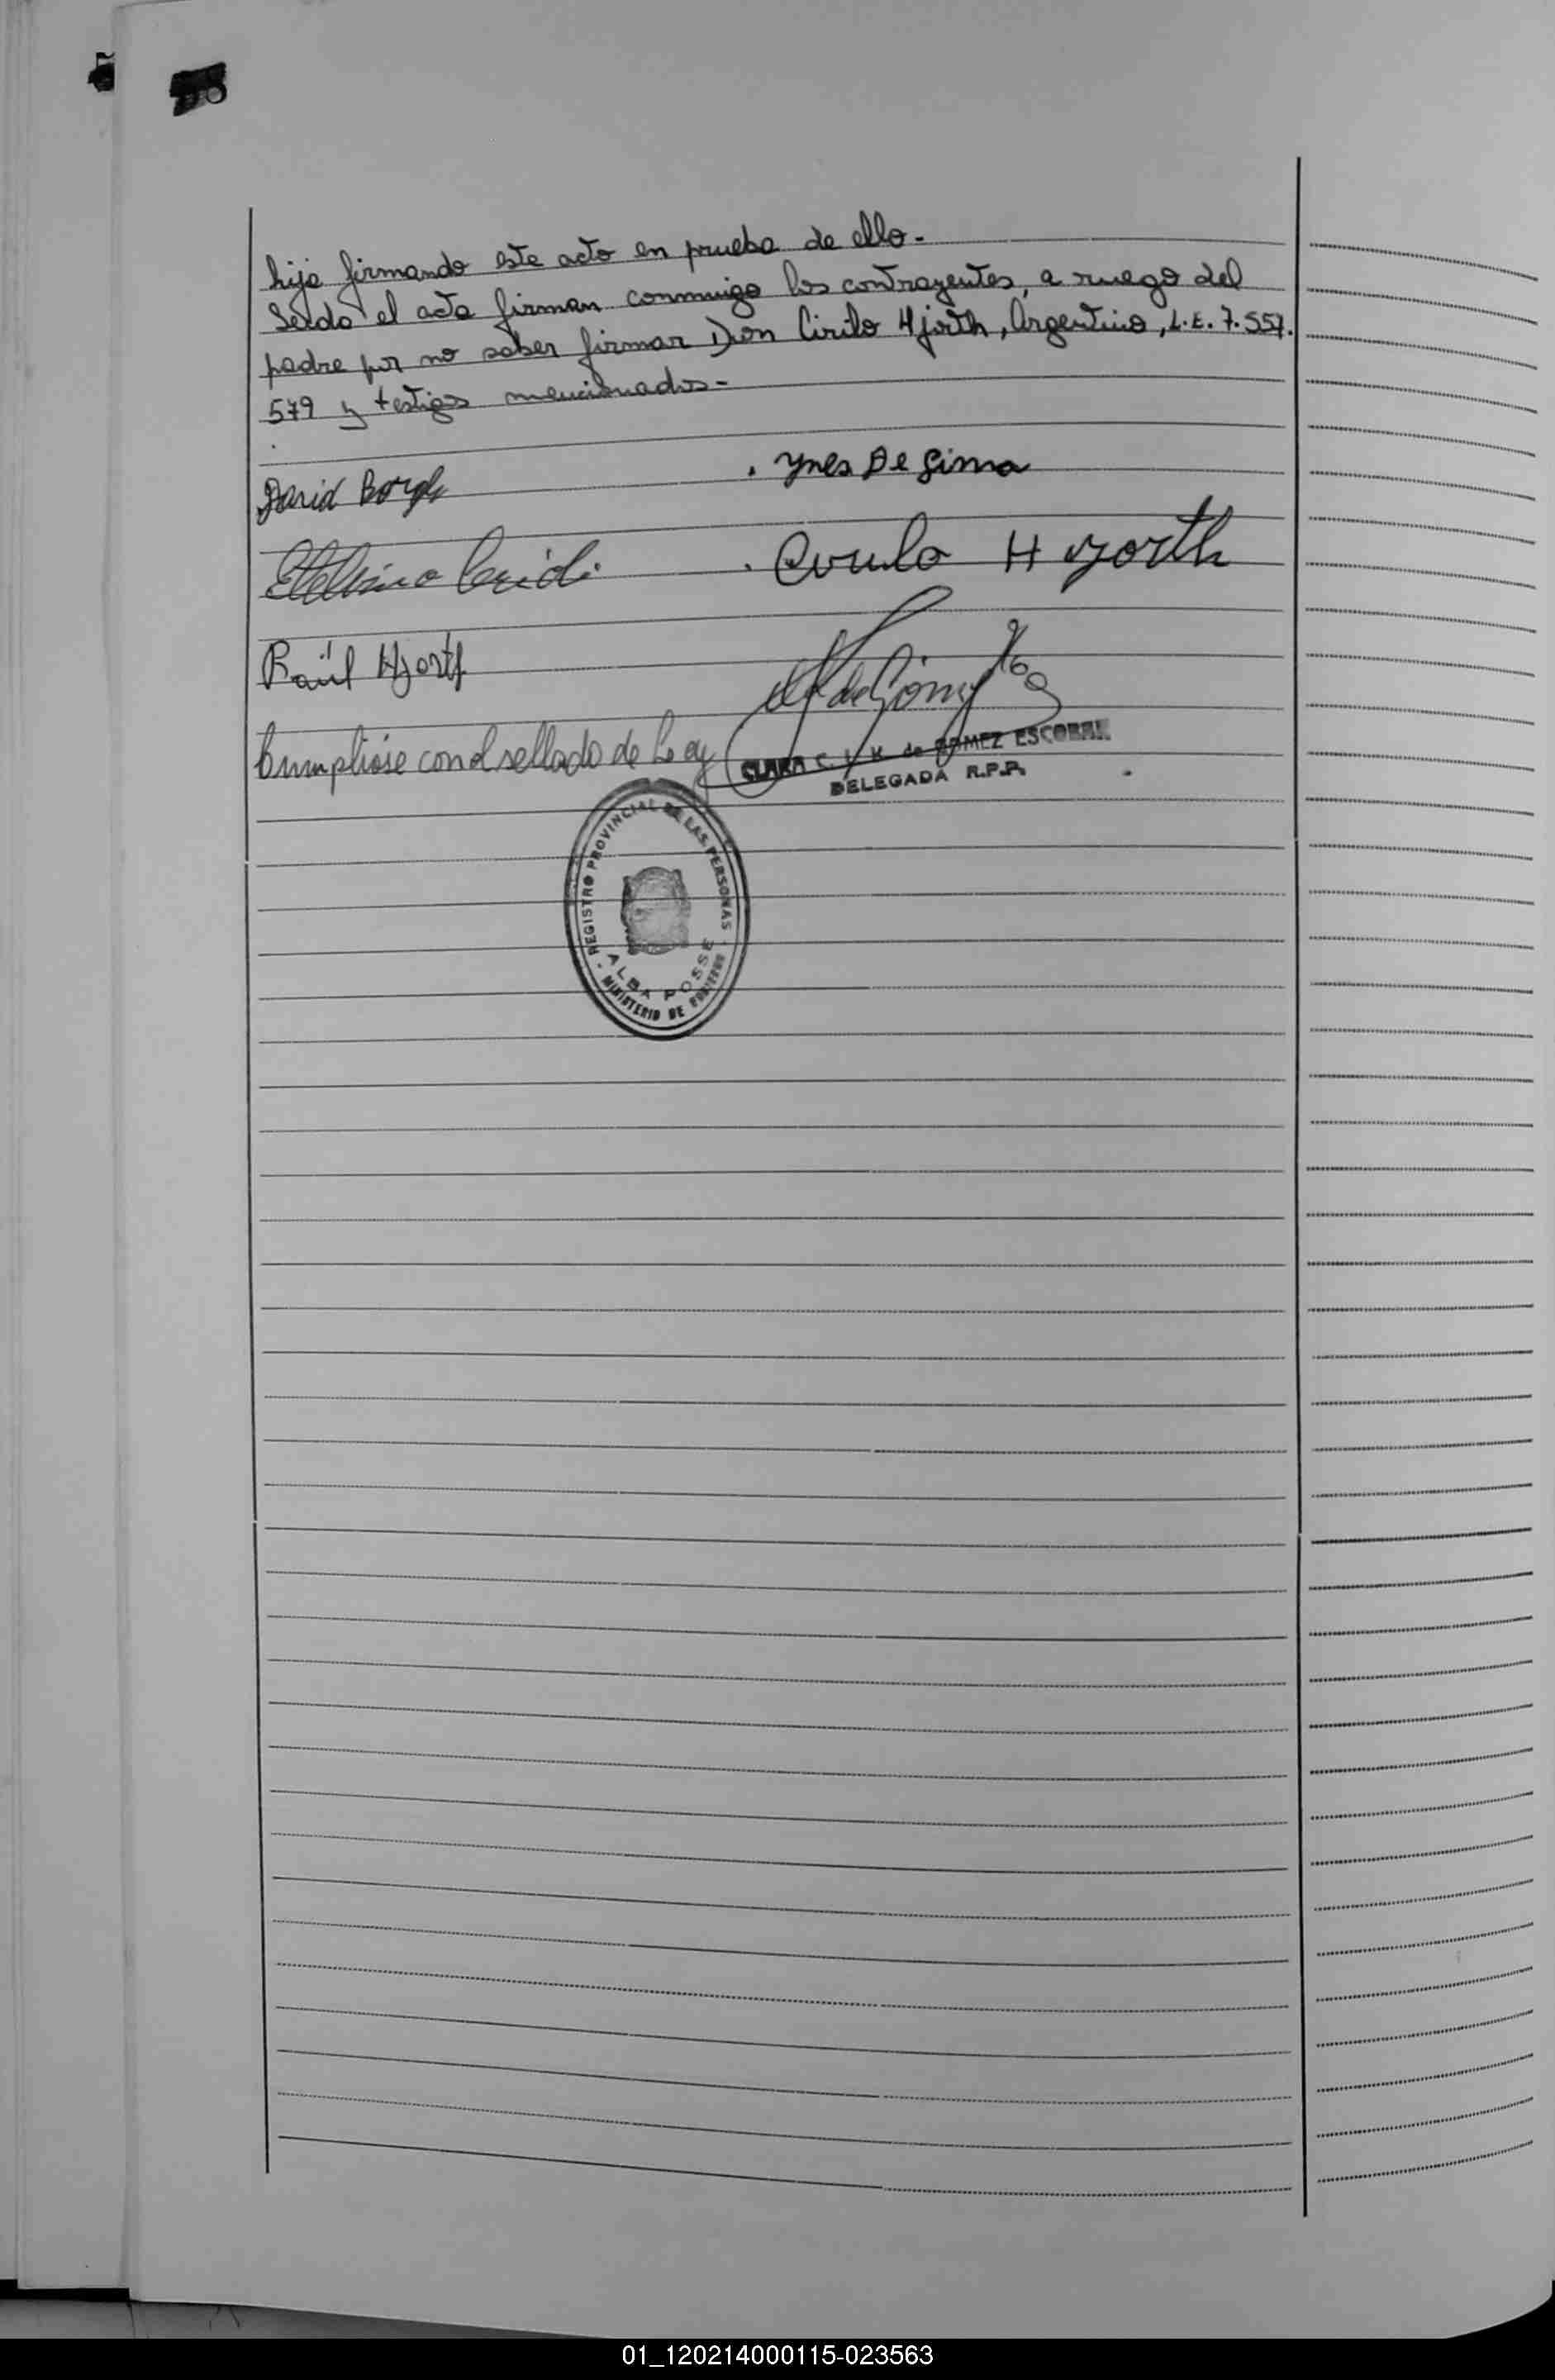 hija firmando este acto en prueba de ello.-
Leído el acta firman conmigo los contrayentes, a ruego del
padre por no saber firmar Don Cirilo Hjorth, Argentino, L.E. 7.557.
579 y testigos mencionados.-
David Borgh
. Ynes De Lima
. Cirulo Hyorth
Raúl Hjorth
Cumplióse con el sellado de Ley
CLARA C. V. K. de GOMEZ ESCOBAR
DELEGADA R.P.P.
REGISTRO PROVINCIAL DE LAS PERSONAS
ALBA POSSE
MINISTERIO DE GOBIERNO
01_120214000115-023563